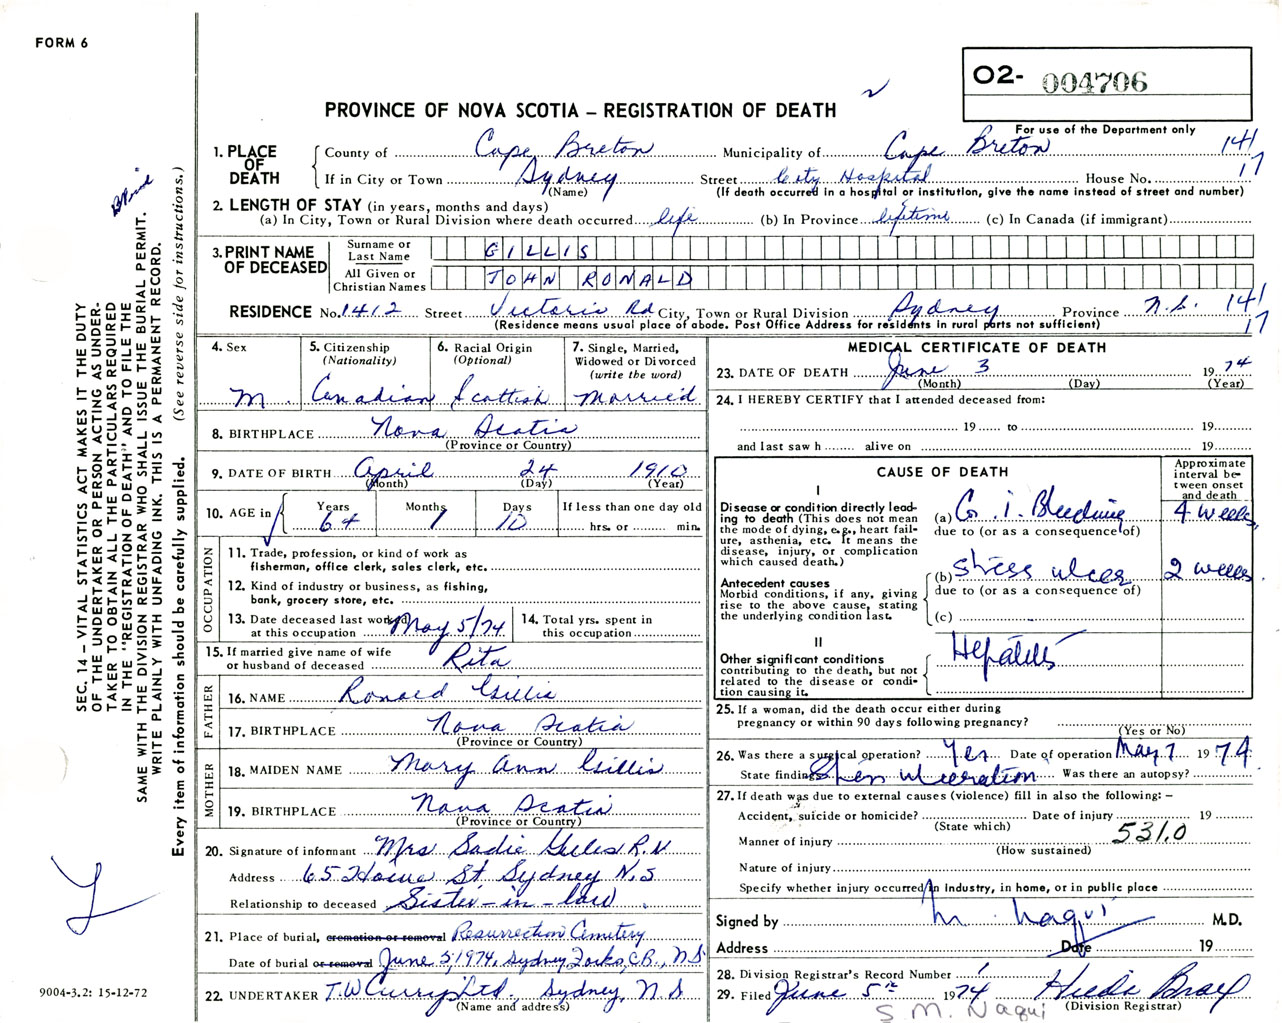 FORM 6
O2- 004706
PROVINCE OF NOVA SCOTIA – REGISTRATION OF DEATH
For use of the Department only
1. PLACE OF DEATH
County of Cape Breton Municipality of Cape Breton 141
If in City or Town Sydney Street City Hospital House No. 17
(Name) (If death occurred in a hospital or institution, give the name instead of street and number)
2. LENGTH OF STAY (in years, months and days)
(a) In City, Town or Rural Division where death occurred life (b) In Province lifetime (c) In Canada (if immigrant)
3. PRINT NAME OF DECEASED
Surname or Last Name GILLIS
All Given or Christian Names JOHN RONALD
RESIDENCE No. 1412 Street Victoria Rd City, Town or Rural Division Sydney Province N.S. 141
(Residence means usual place of abode. Post Office Address for residents in rural parts not sufficient) 17
4. Sex
M.
5. Citizenship
(Nationality)
Canadian
6. Racial Origin
(Optional)
Scottish
7. Single, Married,
Widowed or Divorced
(write the word)
Married
8. BIRTHPLACE Nova Scotia
(Province or Country)
9. DATE OF BIRTH April 24 1910
(Month) (Day) (Year)
10. AGE in
Years Months Days If less than one day old
64 1 10 hrs. or min.
OCCUPATION
11. Trade, profession, or kind of work as
fisherman, office clerk, sales clerk, etc.
12. Kind of industry or business, as fishing,
bank, grocery store, etc.
13. Date deceased last worked
at this occupation May 5/74
14. Total yrs. spent in
this occupation
15. If married give name of wife
or husband of deceased Rita
FATHER
16. NAME Ronald Gillis
17. BIRTHPLACE Nova Scotia
(Province or Country)
MOTHER
18. MAIDEN NAME Mary Ann Gillis
19. BIRTHPLACE Nova Scotia
(Province or Country)
20. Signature of informant Mrs Sadie Gillis R.N
Address 65 St Sydney N.S
Relationship to deceased Sister-in-law
21. Place of burial, cremation or removal Resurrection Cemetery
Date of burial or removal June 5, 1974, Sydney Forks, C.B., N.S
22. UNDERTAKER T.W. Curry Ltd., Sydney, N.S
(Name and address)
MEDICAL CERTIFICATE OF DEATH
23. DATE OF DEATH June 3 1974
(Month) (Day) (Year)
24. I HEREBY CERTIFY that I attended deceased from:
19 to 19
and last saw h alive on 19
CAUSE OF DEATH
Approximate
interval be-
tween onset
and death
I
Disease or condition directly lead-
ing to death (This does not mean
the mode of dying, e.g., heart fail-
ure, asthenia, etc. It means the
disease, injury, or complication
which caused death.)
(a) G.I. Bleeding 4 weeks
due to (or as a consequence of)
Antecedent causes
Morbid conditions, if any, giving
rise to the above cause, stating
the underlying condition last.
(b) stress ulcer 2 weeks
due to (or as a consequence of)
(c)
II
Other significant conditions
contributing to the death, but not
related to the disease or condi-
tion causing it.
Hepatitis
25. If a woman, did the death occur either during
pregnancy or within 90 days following pregnancy?
(Yes or No)
26. Was there a surgical operation? Yes Date of operation May 7 1974
State findings Stress ulceration Was there an autopsy?
27. If death was due to external causes (violence) fill in also the following: –
Accident, suicide or homicide? Date of injury 19
(State which)
531.0
Manner of injury
(How sustained)
Nature of injury
Specify whether injury occurred in industry, in home, or in public place
Signed by M. Naqui M.D.
Address Date 19
28. Division Registrar's Record Number 1
29. Filed June 5th 1974 Hilda
(Division Registrar)
S. M. Naqui
SEC. 14 – VITAL STATISTICS ACT MAKES IT THE DUTY
OF THE UNDERTAKER OR PERSON ACTING AS UNDER-
TAKER TO OBTAIN ALL THE PARTICULARS REQUIRED
IN THE "REGISTRATION OF DEATH" AND TO FILE THE
SAME WITH THE DIVISION REGISTRAR WHO SHALL ISSUE THE BURIAL PERMIT.
WRITE PLAINLY WITH UNFADING INK. THIS IS A PERMANENT RECORD.
Every item of information should be carefully supplied. (See reverse side for instructions.)
9004-3.2: 15-12-72